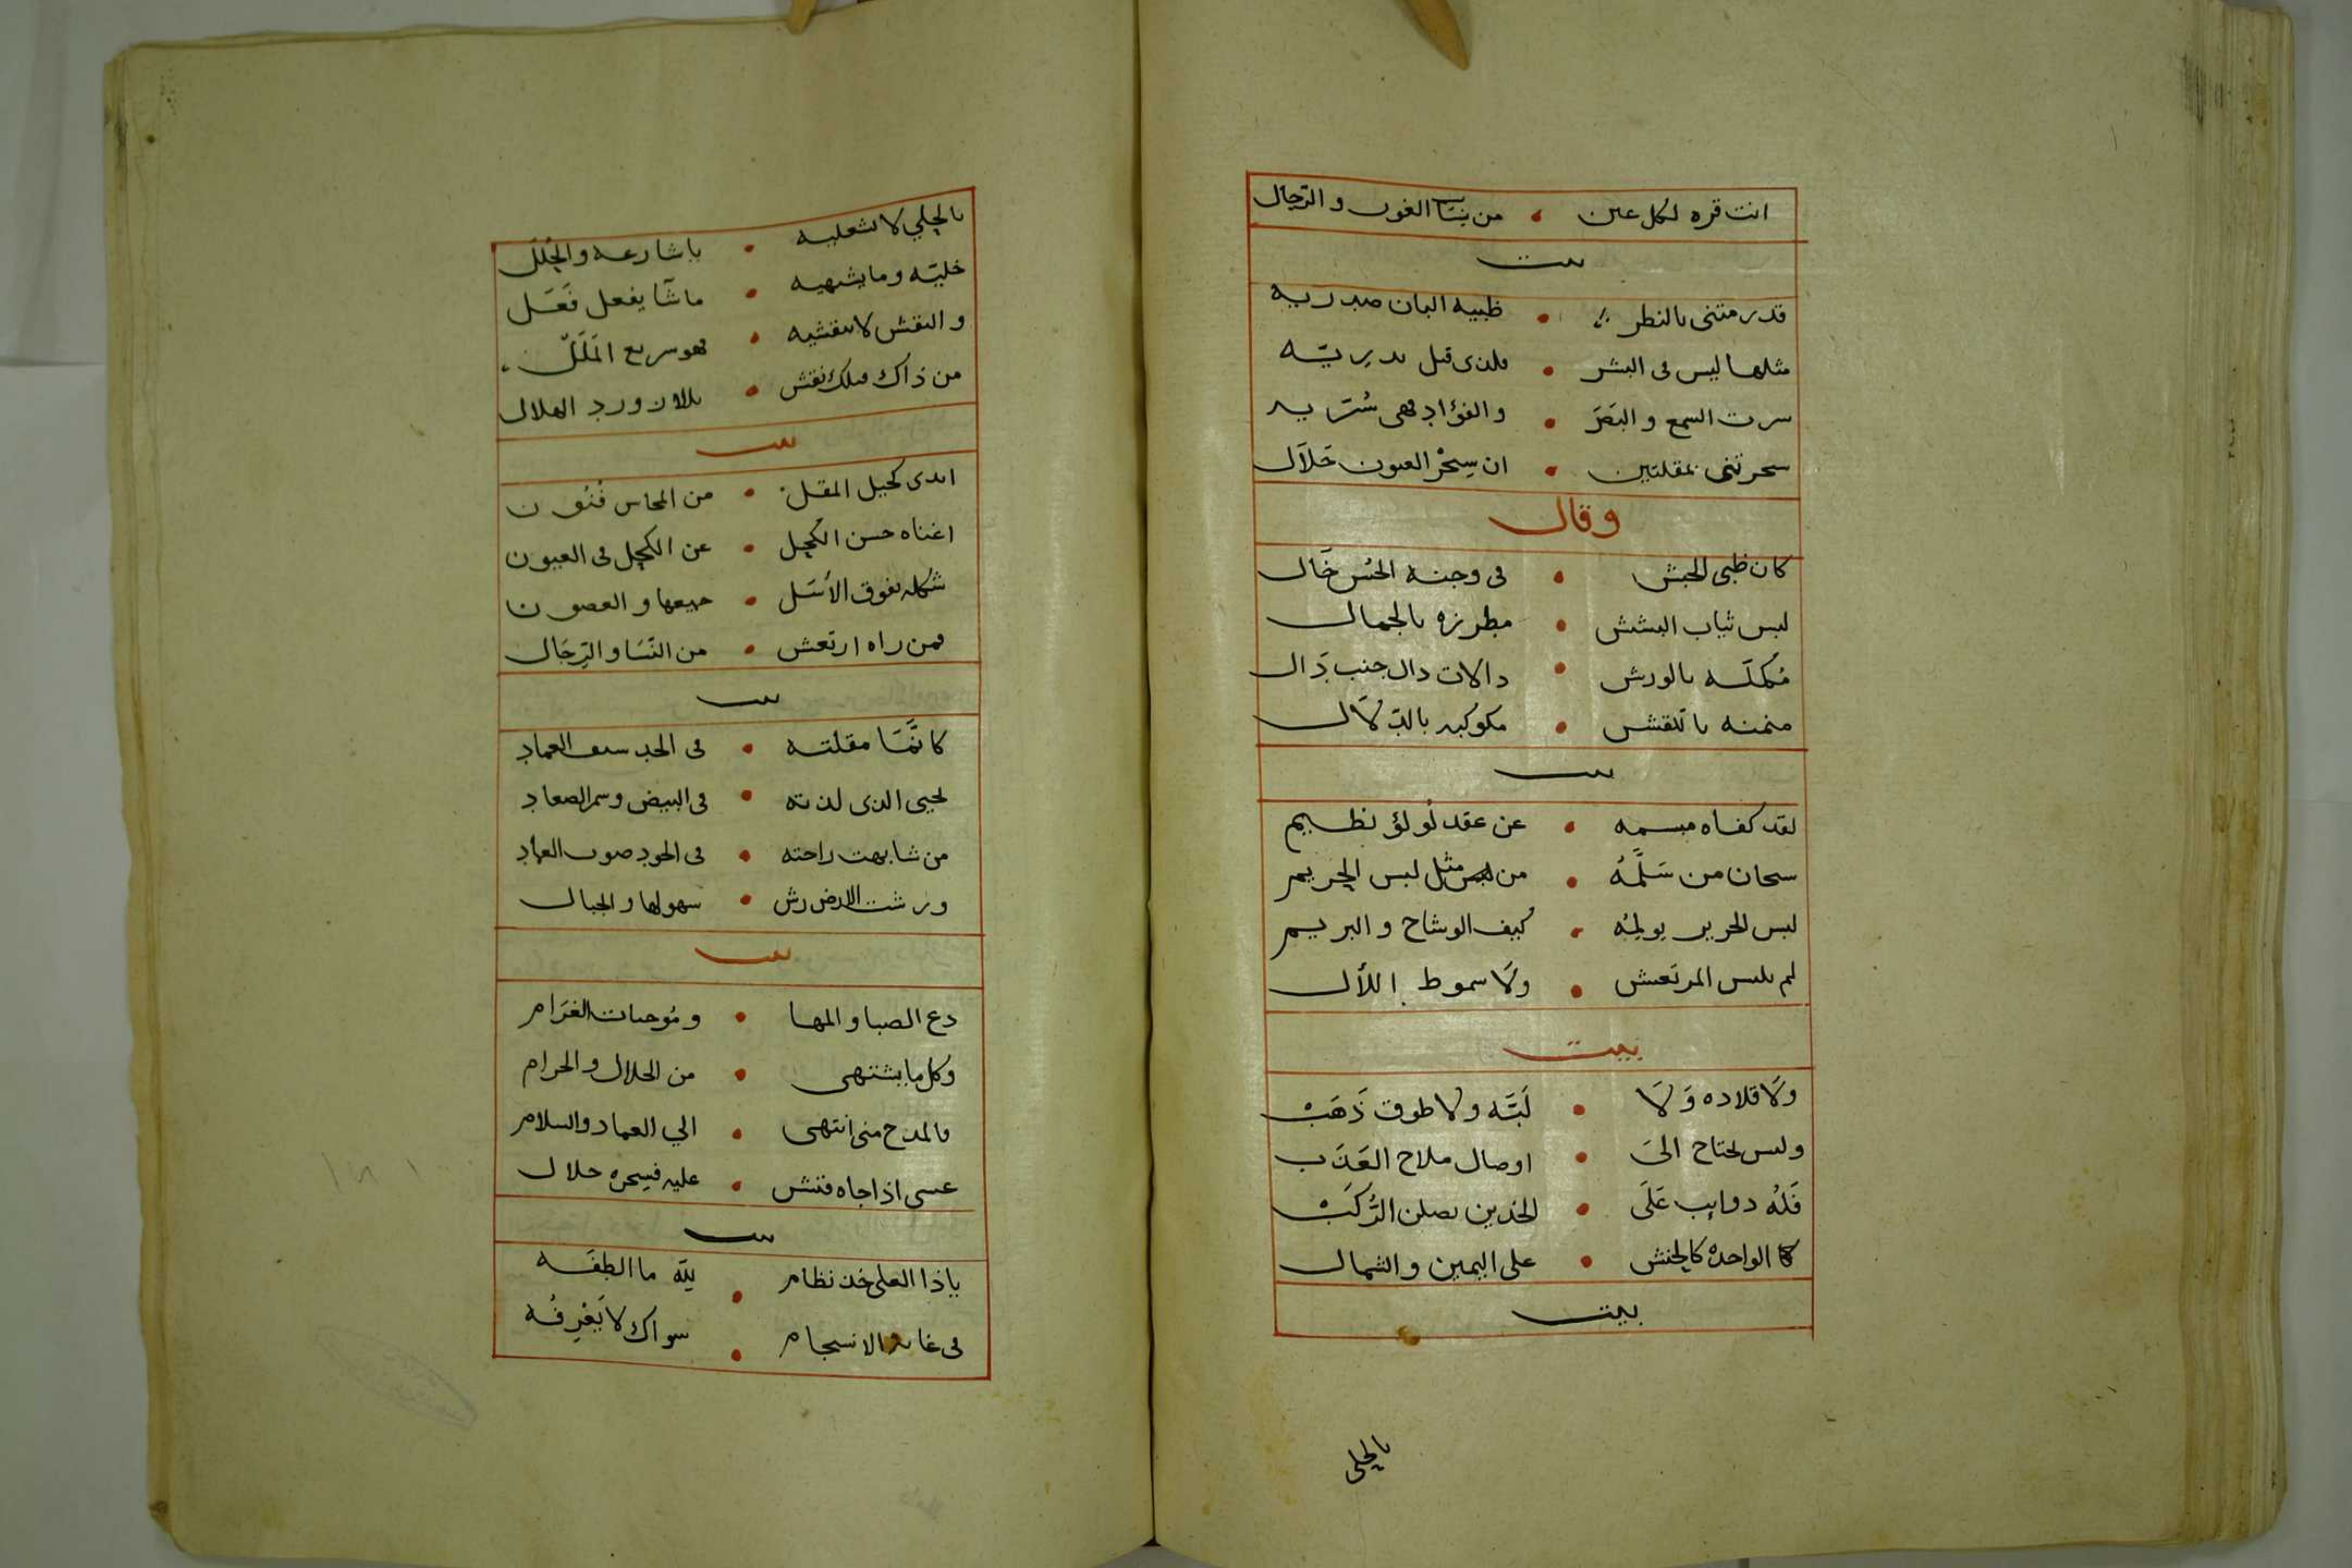 انت قره لكل عين • من نسا الغون والرجال
بيت
قد رمتنى بالنظر • ظبيه البان صدريه
مثلها ليس فى البشر • فلذى قبل بدريّه
سرت السمع والبَصَرَ • والفؤاد فهى سُرّيه
سحرتنى بمقلتين • ان سِحْر العيون حَلاَل
وقال
كان ظبى الحبش • فى وجنه الحُسن خَال
لبس ثياب البشش • مطرزه بالجمال
مُكملّه بالورش • دالات دال جنب دَال
منمنه بالنقش • مكوكبه بالدّلاَل
بيت
لقد كفاه مبسمه • عن عقد لُولُؤ نظيم
سحان من سَلَّمُه • من لبس مثل لبس الحريم
لبس الحرير يولمُه • كيف الوشاح والبريم
لم يلبس المرتعش • ولَا سموط اللأل
بيت
ولَا قلاده وَلَا • لَبَّه ولا طوق ذَهَبْ
وليس يحتاج الىَ • اوصال ملاح العَذَب
فَلهُ دوايب عَلَى • الخدين يصلن الرُّكَبْ
كا الواحده كالحنش • على اليمين والشمال
بيت
بالحلى
بالحلي لا تشعليه • يا شارعه والحُلَل
خليّه وما يشهيه • ما شَا يفعل فَعَل
والنقش لا تنقشيه • فهو سريع المَلَلْ
من ذاك فلك نقش • بللان ورد الهلال
بيت
ابدى كحيل المقل • من المحاسن فُنُون
اغناه حسن الكحل • عن الكحل فى العيون
شكله يفوق الأسَل • جميعها والغصون
فمن راه ارتعش • من النّسَا والرِّجَال
بيت
كانّمَا مقلته • فى الحد سيف العماد
يحيى الذى لذته • فى البيض وسمر الصعاد
من شابهت راحته • فى الجود صوب العهاد
ورشت الارض رش • سهولها والجبال
بيت
دع الصبا والمها • ومُوجبات الغَرَام
وكل ما يشتهى • من الحلال والحرام
فالمدح منى انتهى • الي العماد والسلام
عسى اذا جاه فتش • عليه فسحره حلال
بيت
ياذا العلى خد نظام • للّه ما الطفَه
فى غايه الانسجام • سواك لا يَعْرِفُه